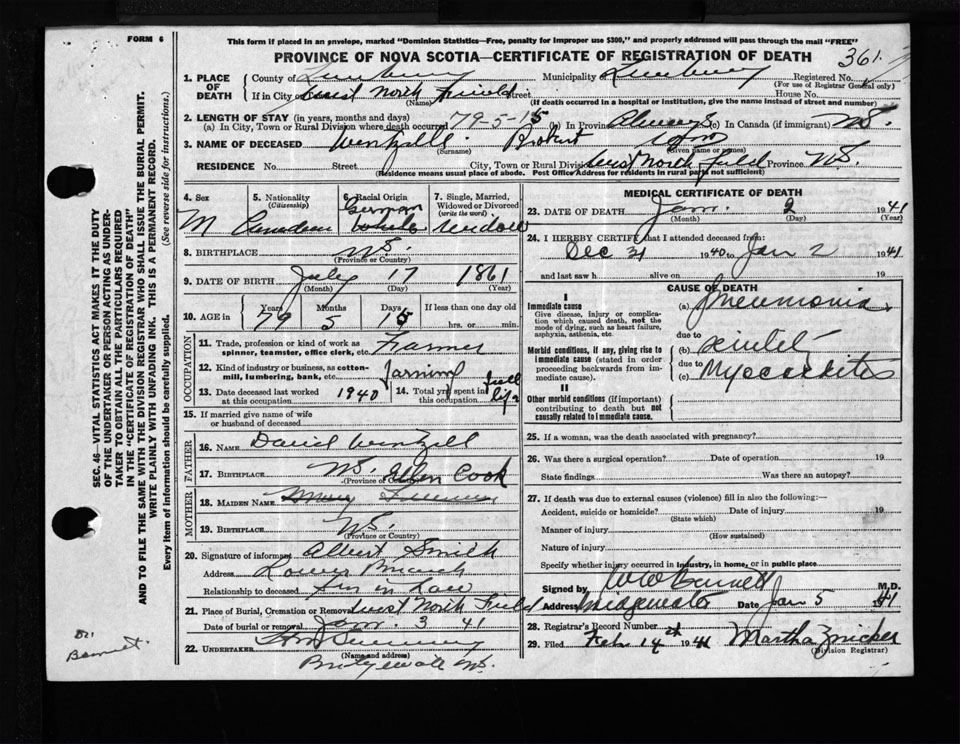 FORM 6
This form if placed in an envelope, marked "Dominion Statistics—Free, penalty for improper use $300," and properly addressed will pass through the mail "FREE"
PROVINCE OF NOVA SCOTIA—CERTIFICATE OF REGISTRATION OF DEATH
361
1. PLACE OF DEATH County of Lunenburg Municipality Lunenburg Registered No.
(For use of Registrar General only)
If in City or West North Field Street House No.
(Name) (If death occurred in a hospital or institution, give the name instead of street and number)
2. LENGTH OF STAY (in years, months and days)
(a) In City, Town or Rural Division where death occurred 79-5-15 (b) In Province Always (c) In Canada (if immigrant) NS.
3. NAME OF DECEASED Wentzell Robert
(Surname) (Given name or names)
RESIDENCE No. Street City, Town or Rural Division West North Field Province NS.
(Residence means usual place of abode. Post Office Address for residents in rural parts not sufficient)
4. Sex M
5. Nationality (Citizenship) Canadian
6. Racial Origin German white
7. Single, Married, Widowed or Divorced (write the word) widow
8. BIRTHPLACE NS.
(Province or Country)
9. DATE OF BIRTH July 17 1861
(Month) (Day) (Year)
10. AGE in Years 79 Months 5 Days 15 If less than one day old hrs. or min.
OCCUPATION
11. Trade, profession or kind of work as spinner, teamster, office clerk, etc. Farmer
12. Kind of industry or business, as cotton-mill, lumbering, bank, etc. farming
13. Date deceased last worked at this occupation 1940
14. Total yrs. spent in this occupation full life
15. If married give name of wife or husband of deceased
FATHER
16. NAME David Wentzell
17. BIRTHPLACE NS.
(Province or Country)
MOTHER
Ellen Cook
18. MAIDEN NAME
19. BIRTHPLACE NS.
(Province or Country)
20. Signature of informant Albert Smith
Address Lower Branch
Relationship to deceased Son in Law
21. Place of Burial, Cremation or Removal West North Field
Date of burial or removal Jan. 3 41
22. UNDERTAKER
(Name and address)
NS.
MEDICAL CERTIFICATE OF DEATH
23. DATE OF DEATH Jan. 2 1941
(Month) (Day) (Year)
24. I HEREBY CERTIFY that I attended deceased from:
Dec 31 1940 to Jan 2 1941
and last saw h alive on 19
CAUSE OF DEATH
I
Immediate cause
Give disease, injury or complication which caused death, not the mode of dying, such as heart failure, asphyxia, asthenia, etc.
(a) Pneumonia
due to
Morbid conditions, if any, giving rise to immediate cause (stated in order proceeding backwards from immediate cause).
(b)
due to
(c) Myocarditis
II
Other morbid conditions (if important) contributing to death but not causally related to immediate cause.
25. If a woman, was the death associated with pregnancy?
26. Was there a surgical operation? Date of operation 19
State findings Was there an autopsy?
27. If death was due to external causes (violence) fill in also the following:—
Accident, suicide or homicide? Date of injury 19
(State which)
Manner of injury
(How sustained)
Nature of injury
Specify whether injury occurred in industry, in home, or in public place
Signed by Barnett M.D.
Address Bridgewater Date Jan 5 41
28. Registrar's Record Number
29. Filed Feb. 14 1941 Martha Zwicker
(Division Registrar)
SEC. 46—VITAL STATISTICS ACT MAKES IT THE DUTY
OF THE UNDERTAKER OR PERSON ACTING AS UNDER-
TAKER TO OBTAIN ALL THE PARTICULARS REQUIRED
IN THE "CERTIFICATE OF REGISTRATION OF DEATH"
AND TO FILE THE SAME WITH THE DIVISION REGISTRAR WHO SHALL ISSUE THE BURIAL PERMIT.
WRITE PLAINLY WITH UNFADING INK. THIS IS A PERMANENT RECORD.
Every item of information should be carefully supplied. (See reverse side for instructions.)
Dr.
Barnett.